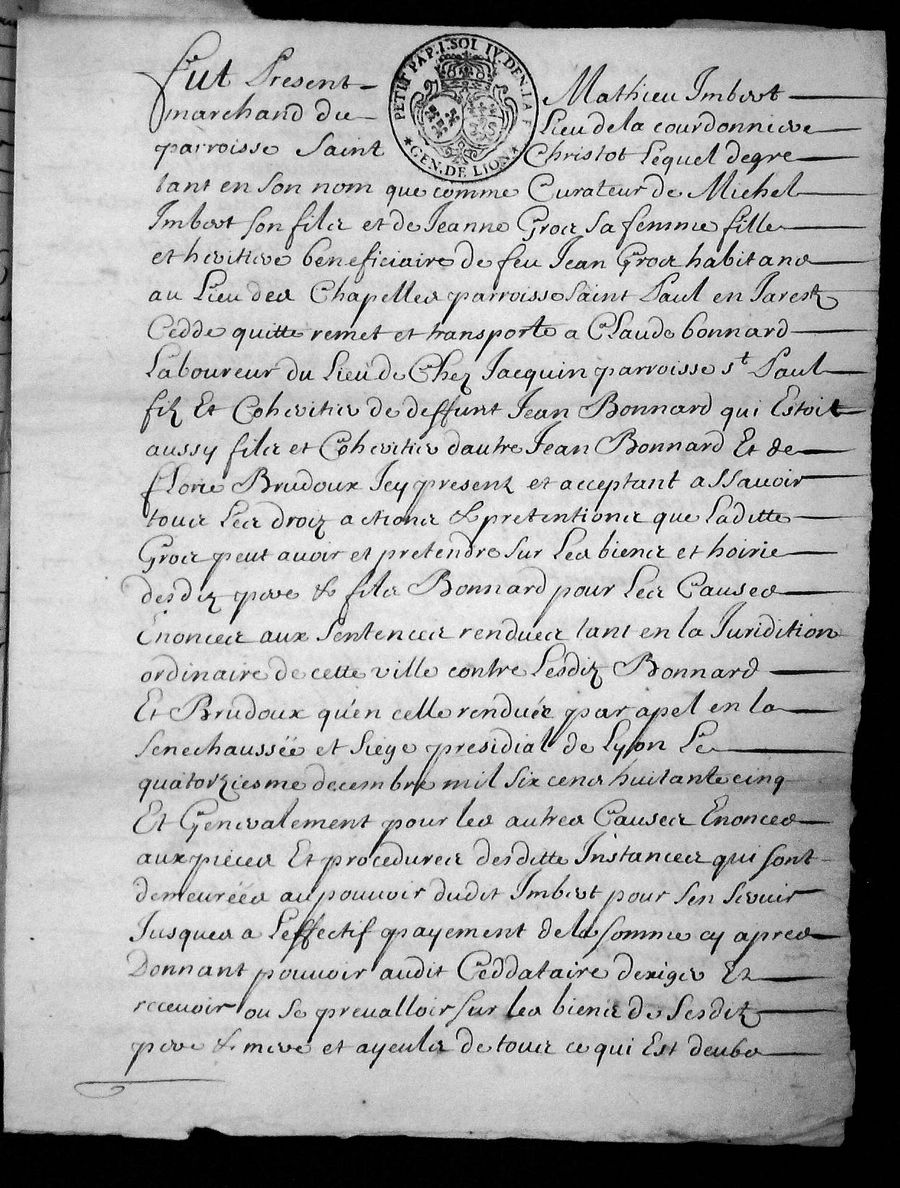 PETIT PAP. I. SOL IV. DEN. LA F
GEN. DE LION
Fut Present Mathieu Imbert
marchand du Lieu de la courdonniere
parroisse Saint Christot Lequel de gre
tant en son nom que comme Curateur de Michel
Imbert son filz et de Jeanne Gros sa femme fille
et heritiere beneficiaire de feu Jean Gros habitans
au Lieu des Chapelles parroisse Saint Paul en Jarestz
Cedde quitte remet et transporte a Claude bonnard
Laboureur du Lieu de Chez Jacquin parroisse st Paul
filz Et Coheritier de deffunt Jean Bonnard qui Estoit
aussy filz et Coheritier dautre Jean Bonnard Et de
florie Brudoux Icy present et acceptant assavoir
tous Les droiz actions & pretentions que Laditte
Gros peut avoir et pretendre sur Les biens et hoirie
desdiz pere & filz Bonnard pour Les Causes
Enoncees aux sentences rendues tant en la Juridition
ordinaire de cette ville contre Lesdiz Bonnard
Et Brudoux qu'en celle renduée par apel en la
senechaussée et siége presidial de Lyon Le
quatorziesme decembre mil six cens huitante cinq
Et Generalement pour les autres Causes Enonces
aux pieces Et procedures desditte Instances qui sont
demeurées au pouvoir dudit Imbert pour sen servir
Jusques a Leffectif payement de la somme cy apres
Donnant pouvoir audit Ceddataire dexiger Et
recevoir ou se prevalloir sur les biens de sesdiz
pere & mere et ayeulz de tous ce qui Est deube